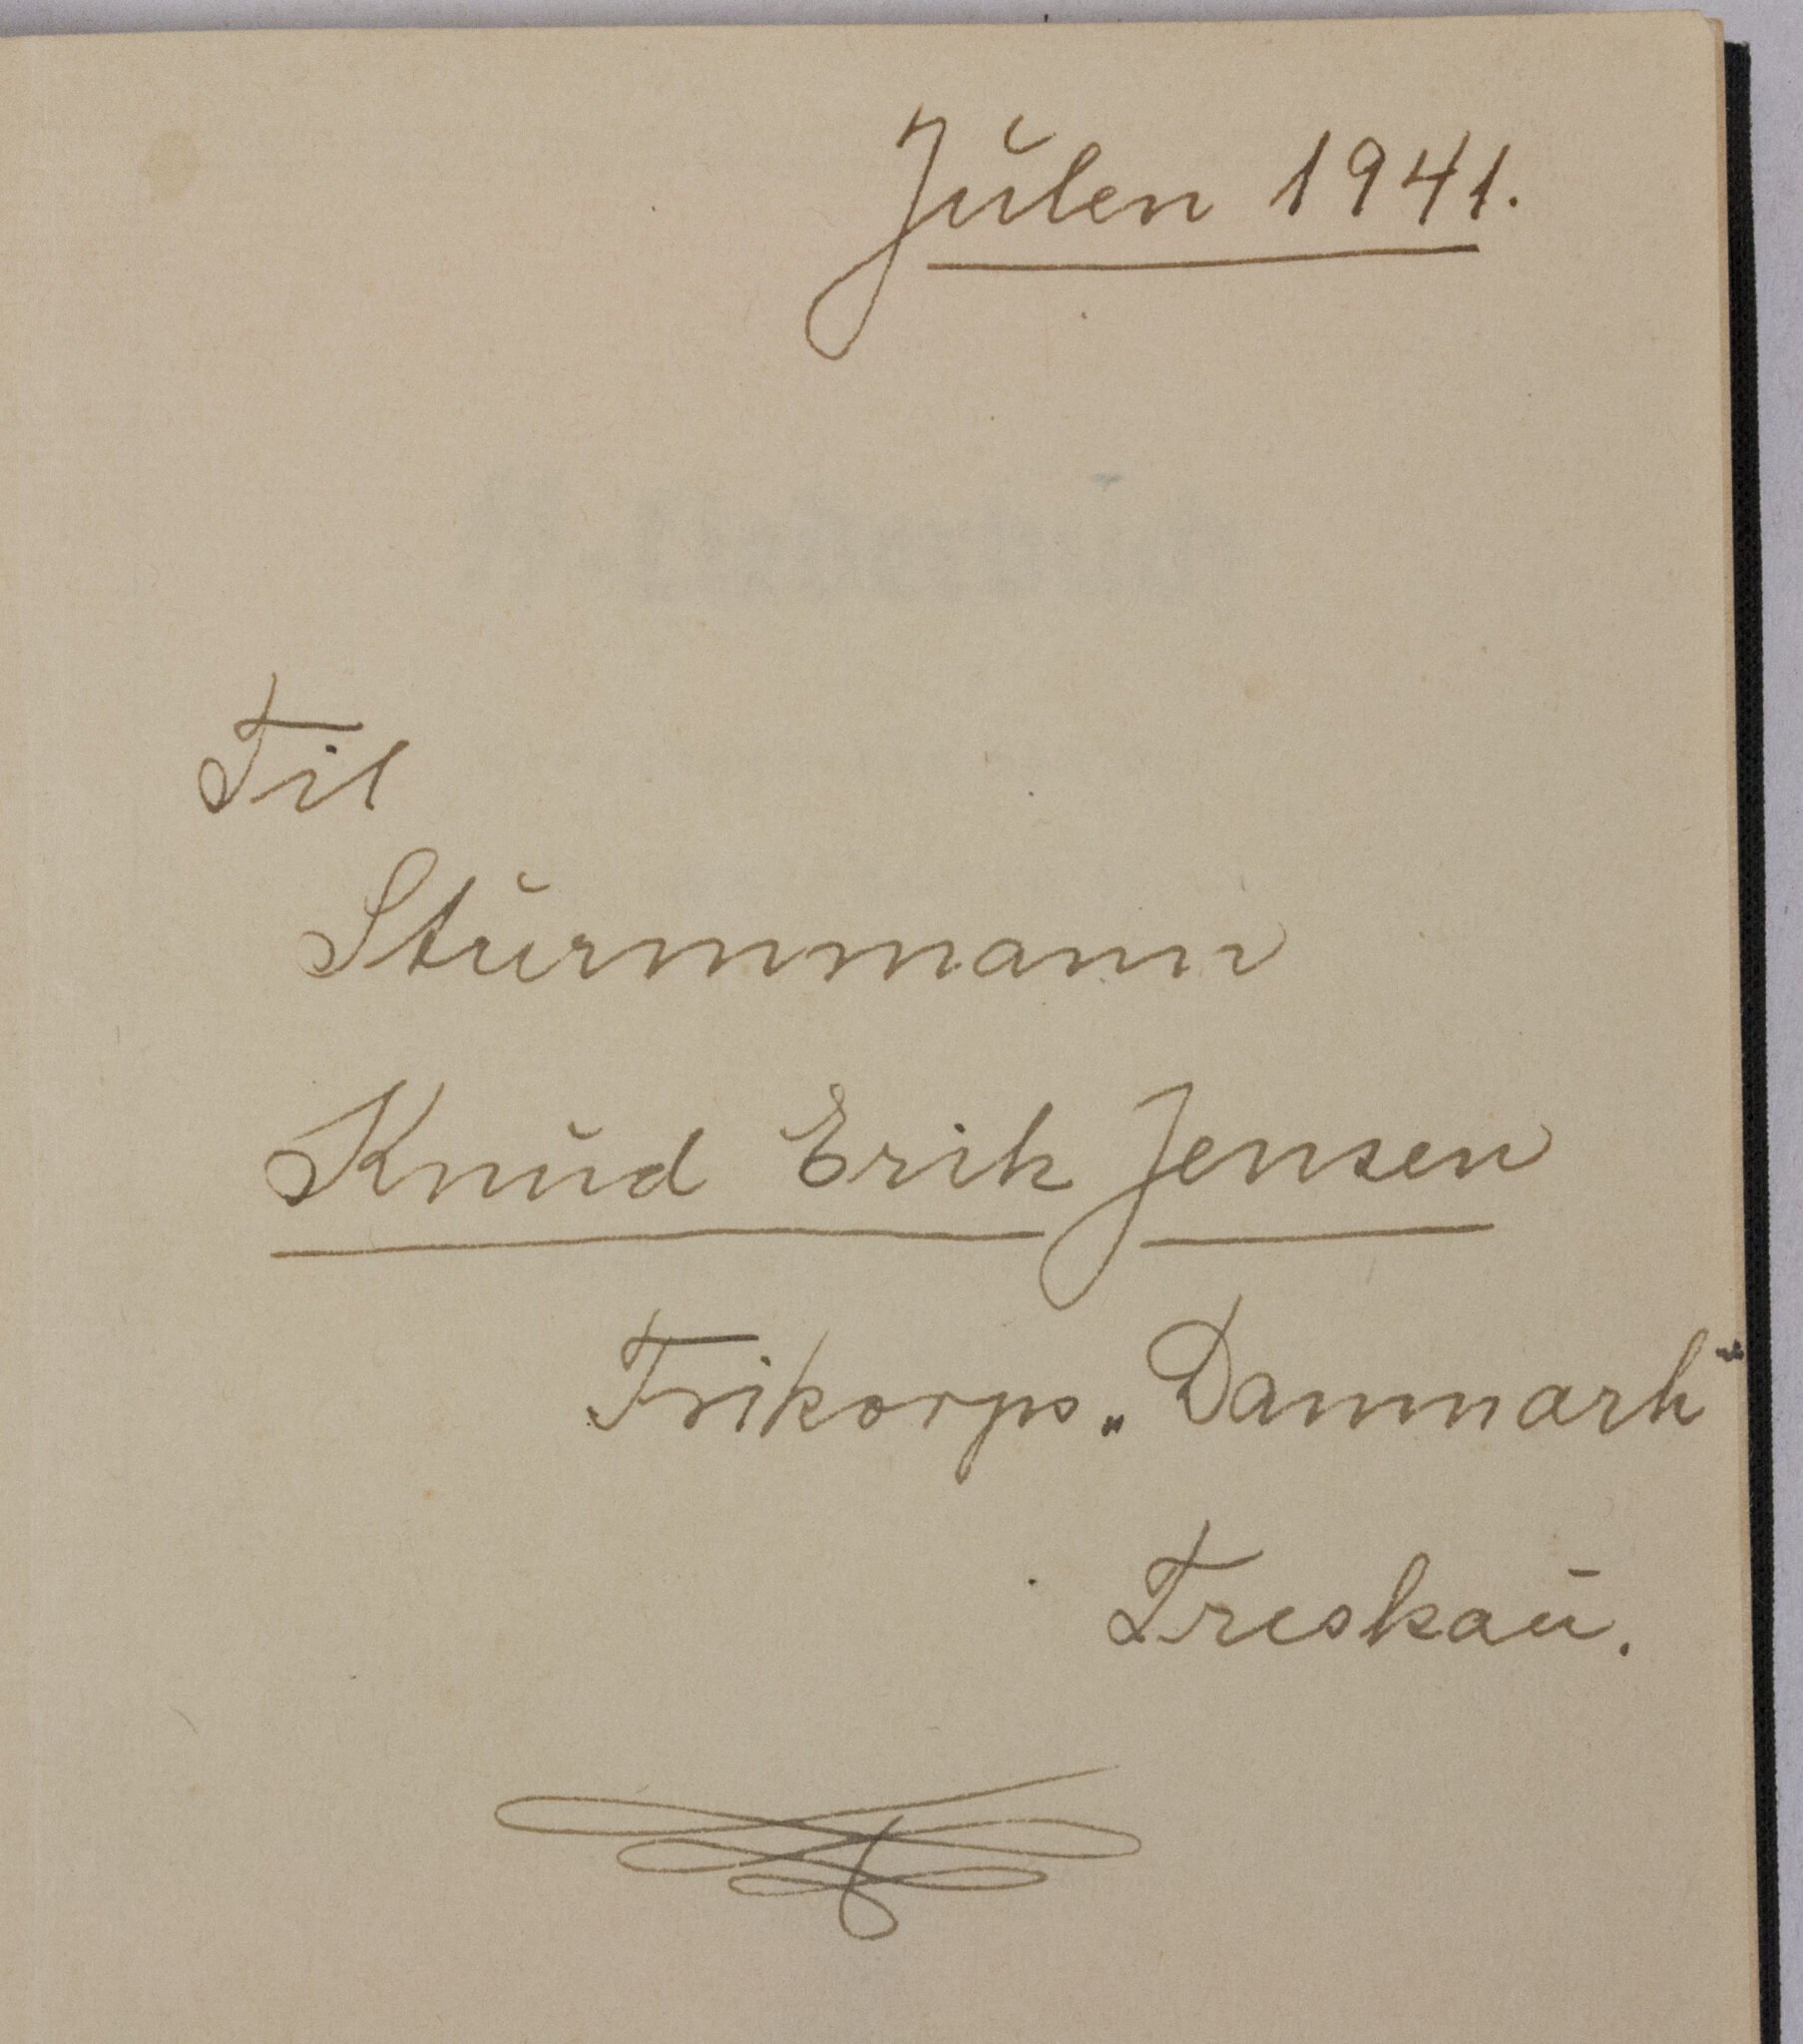 Julen 1941.
Til
Sturmmann
Knud Erik Jensen
Frikorps „Danmark“
Treskau.